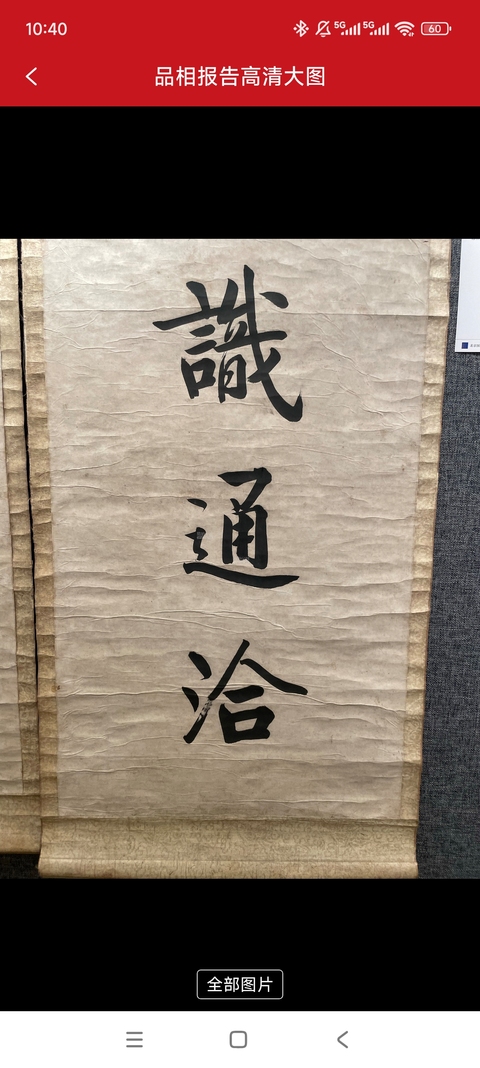 10:40
5G 5G 60
品相报告高清大图
識
通
洽
全部图片